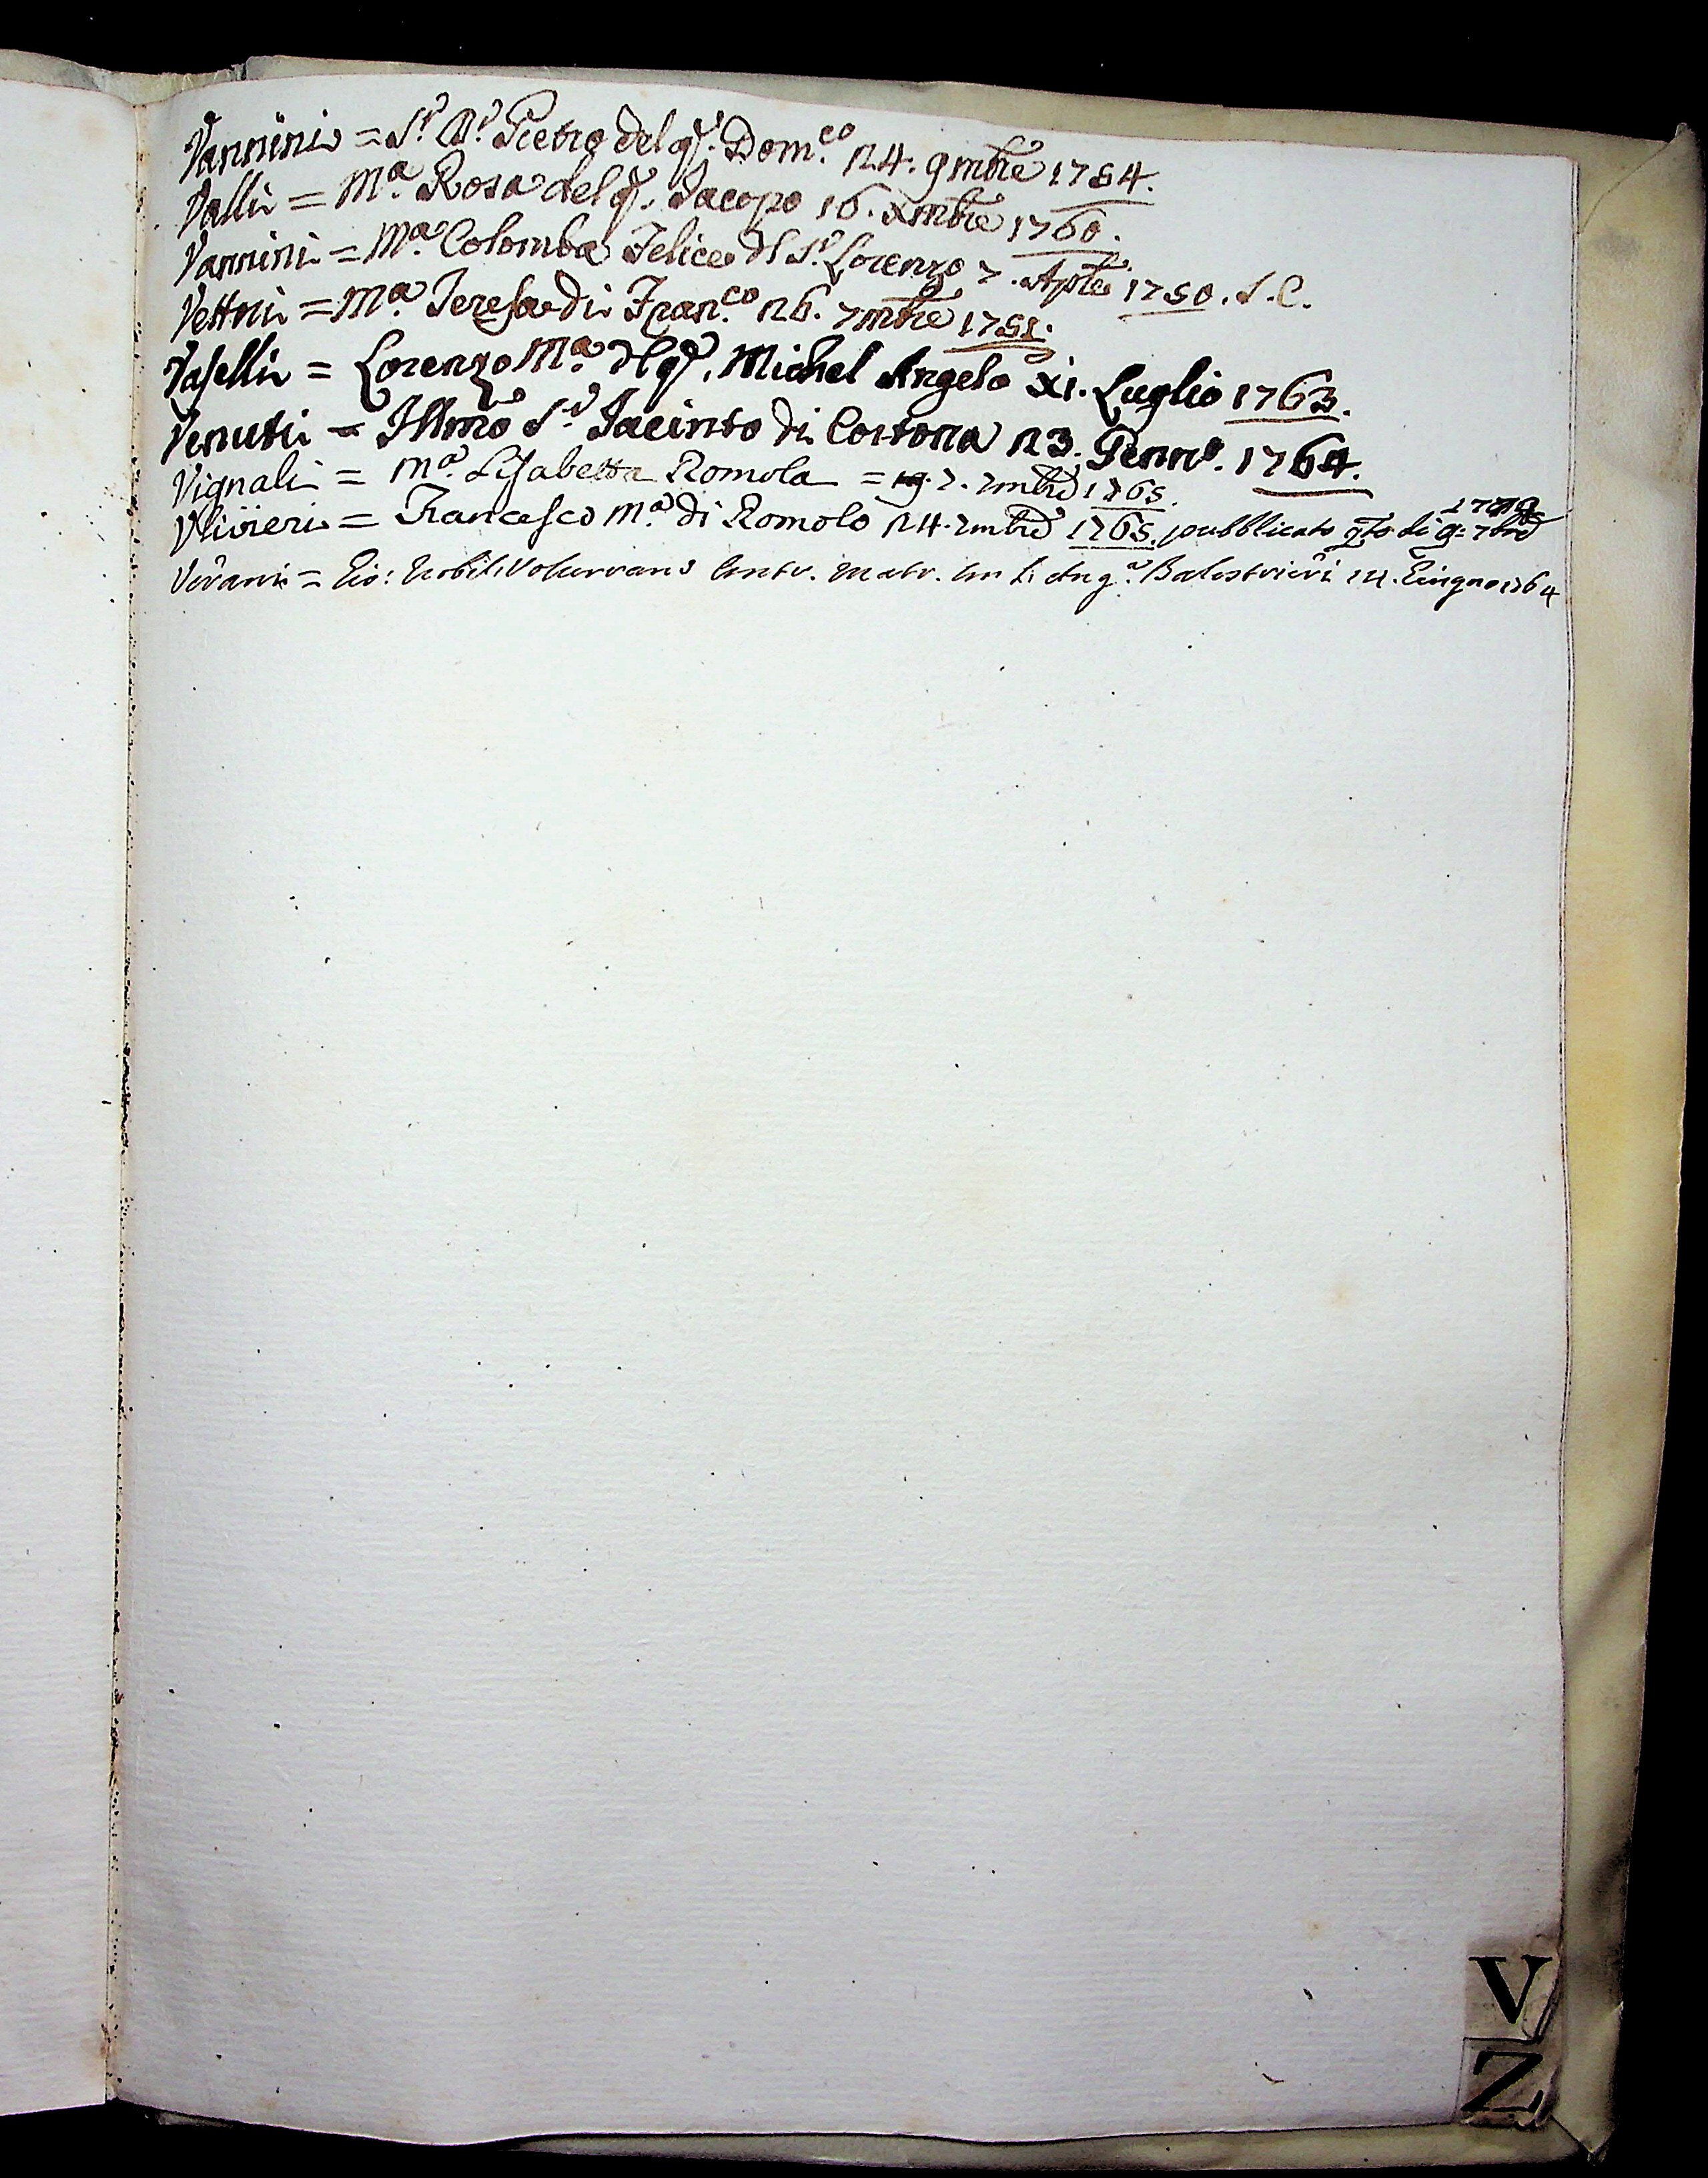 Vannini = S.r D.r Pietro del q. Dom.co 24. 9mbre 1754.
Valli = M.a Rosa del q. Jacopo 16. Xmbre 1760.
Vannini = M.a Colomba Felice dl S.r Lorenzo 7. Aple 1750. S.C.
Vettni = M.a Teresa di Fran.co 26. 7mbre 1751.
Vaselli = Lorenzo M.a dl q. Michel Angelo XI. Luglio 1763.
Venuti = Illmo S.r Jacinto di Cortona 23. Genn.o 1764.
Vignali = M.a Lisabetta Romola = 7. 7mbre 1765.
Ulivieri = Francesco M.a di Romolo 24. 7mbre 1765. pubblicato q.to di 9 = 7bre
Vivani = Gio: Nobil Volterrano Matr. Ang.a Balestrieri Giugno 1764
V
Z